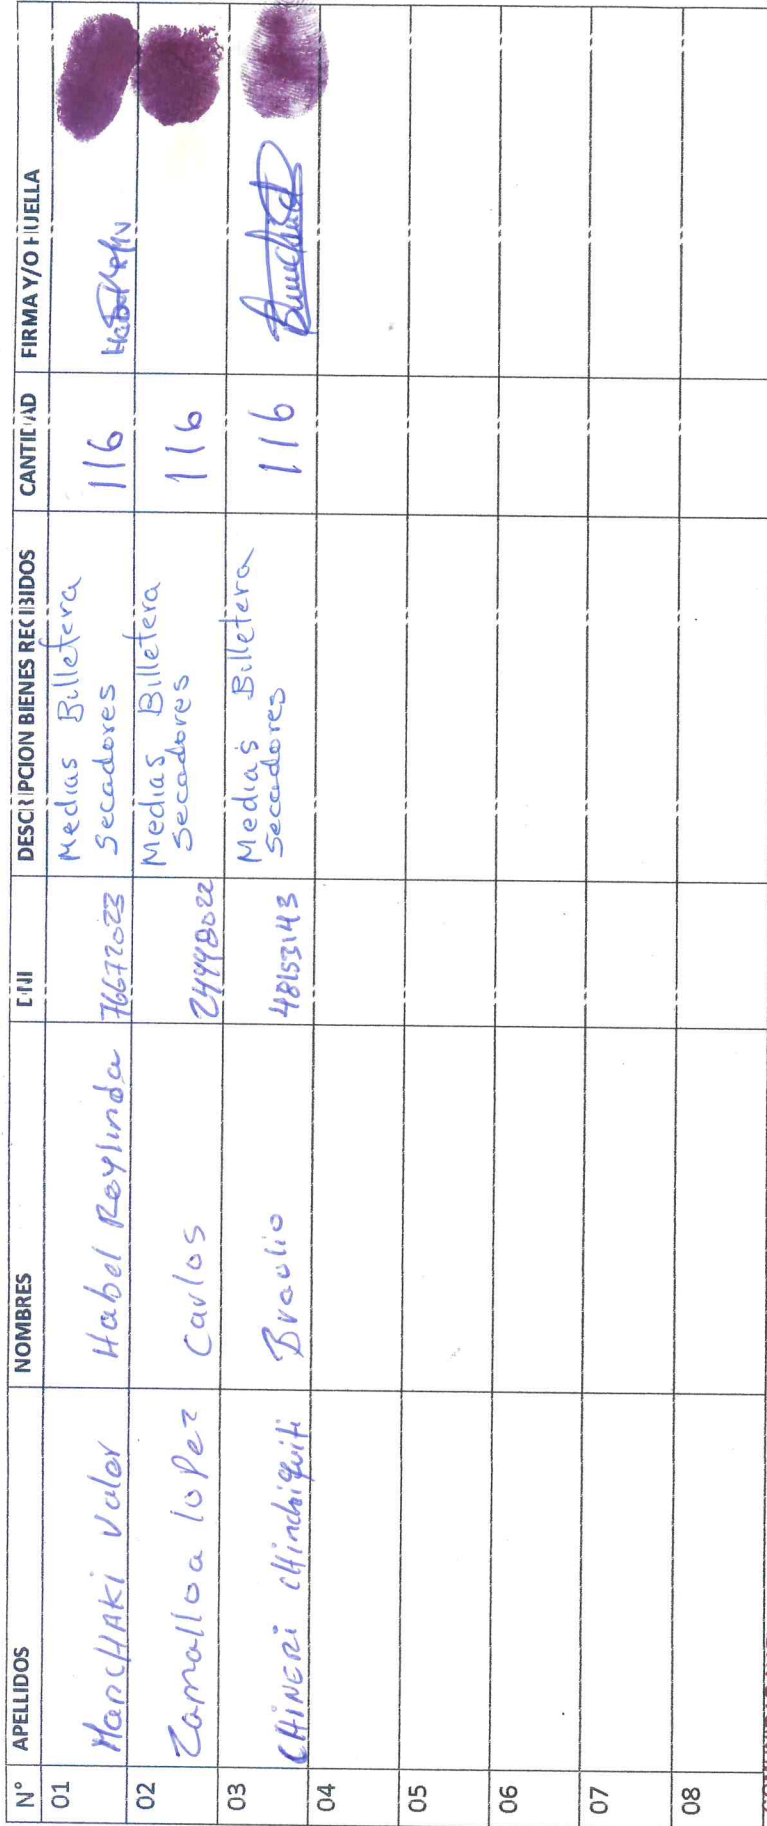 N° APELLIDOS NOMBRES DNI DESCRIPCION BIENES RECIBIDOS CANTIDAD FIRMA Y/O HUELLA
01 ManCHAKi Valer Habel Reylinda 76672023 Medias Billetera
Secadores 116
02 Zamalloa loPez Carlos 24998022 Medias Billetera
Secadores 116
03 CHiNERi cHinchiquiti Braulio 48153143 Medias Billetera
Secadores 116
04
05
06
07
08